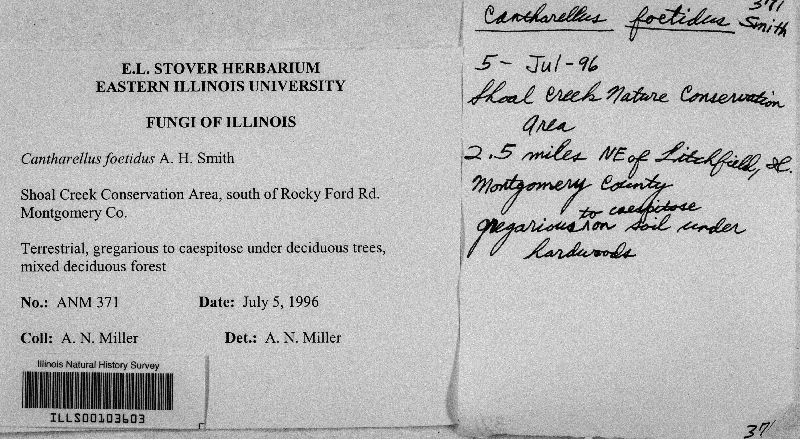 E.L. STOVER HERBARIUM
EASTERN ILLINOIS UNIVERSITY
FUNGI OF ILLINOIS
Cantharellus foetidus A. H. Smith
Shoal Creek Conservation Area, south of Rocky Ford Rd.
Montgomery Co.
Terrestrial, gregarious to caespitose under deciduous trees,
mixed deciduous forest
No.: ANM 371 Date: July 5, 1996
Coll: A. N. Miller Det.: A. N. Miller
Illinois Natural History Survey
ILLS00103603
371
Cantharellus foetidus Smith
5-Jul-96
Shoal Creek Nature Conservation
Area
2.5 miles NE of Litchfield, Il.
Montgomery County
gregarious to caespitose on soil under
hardwoods
371